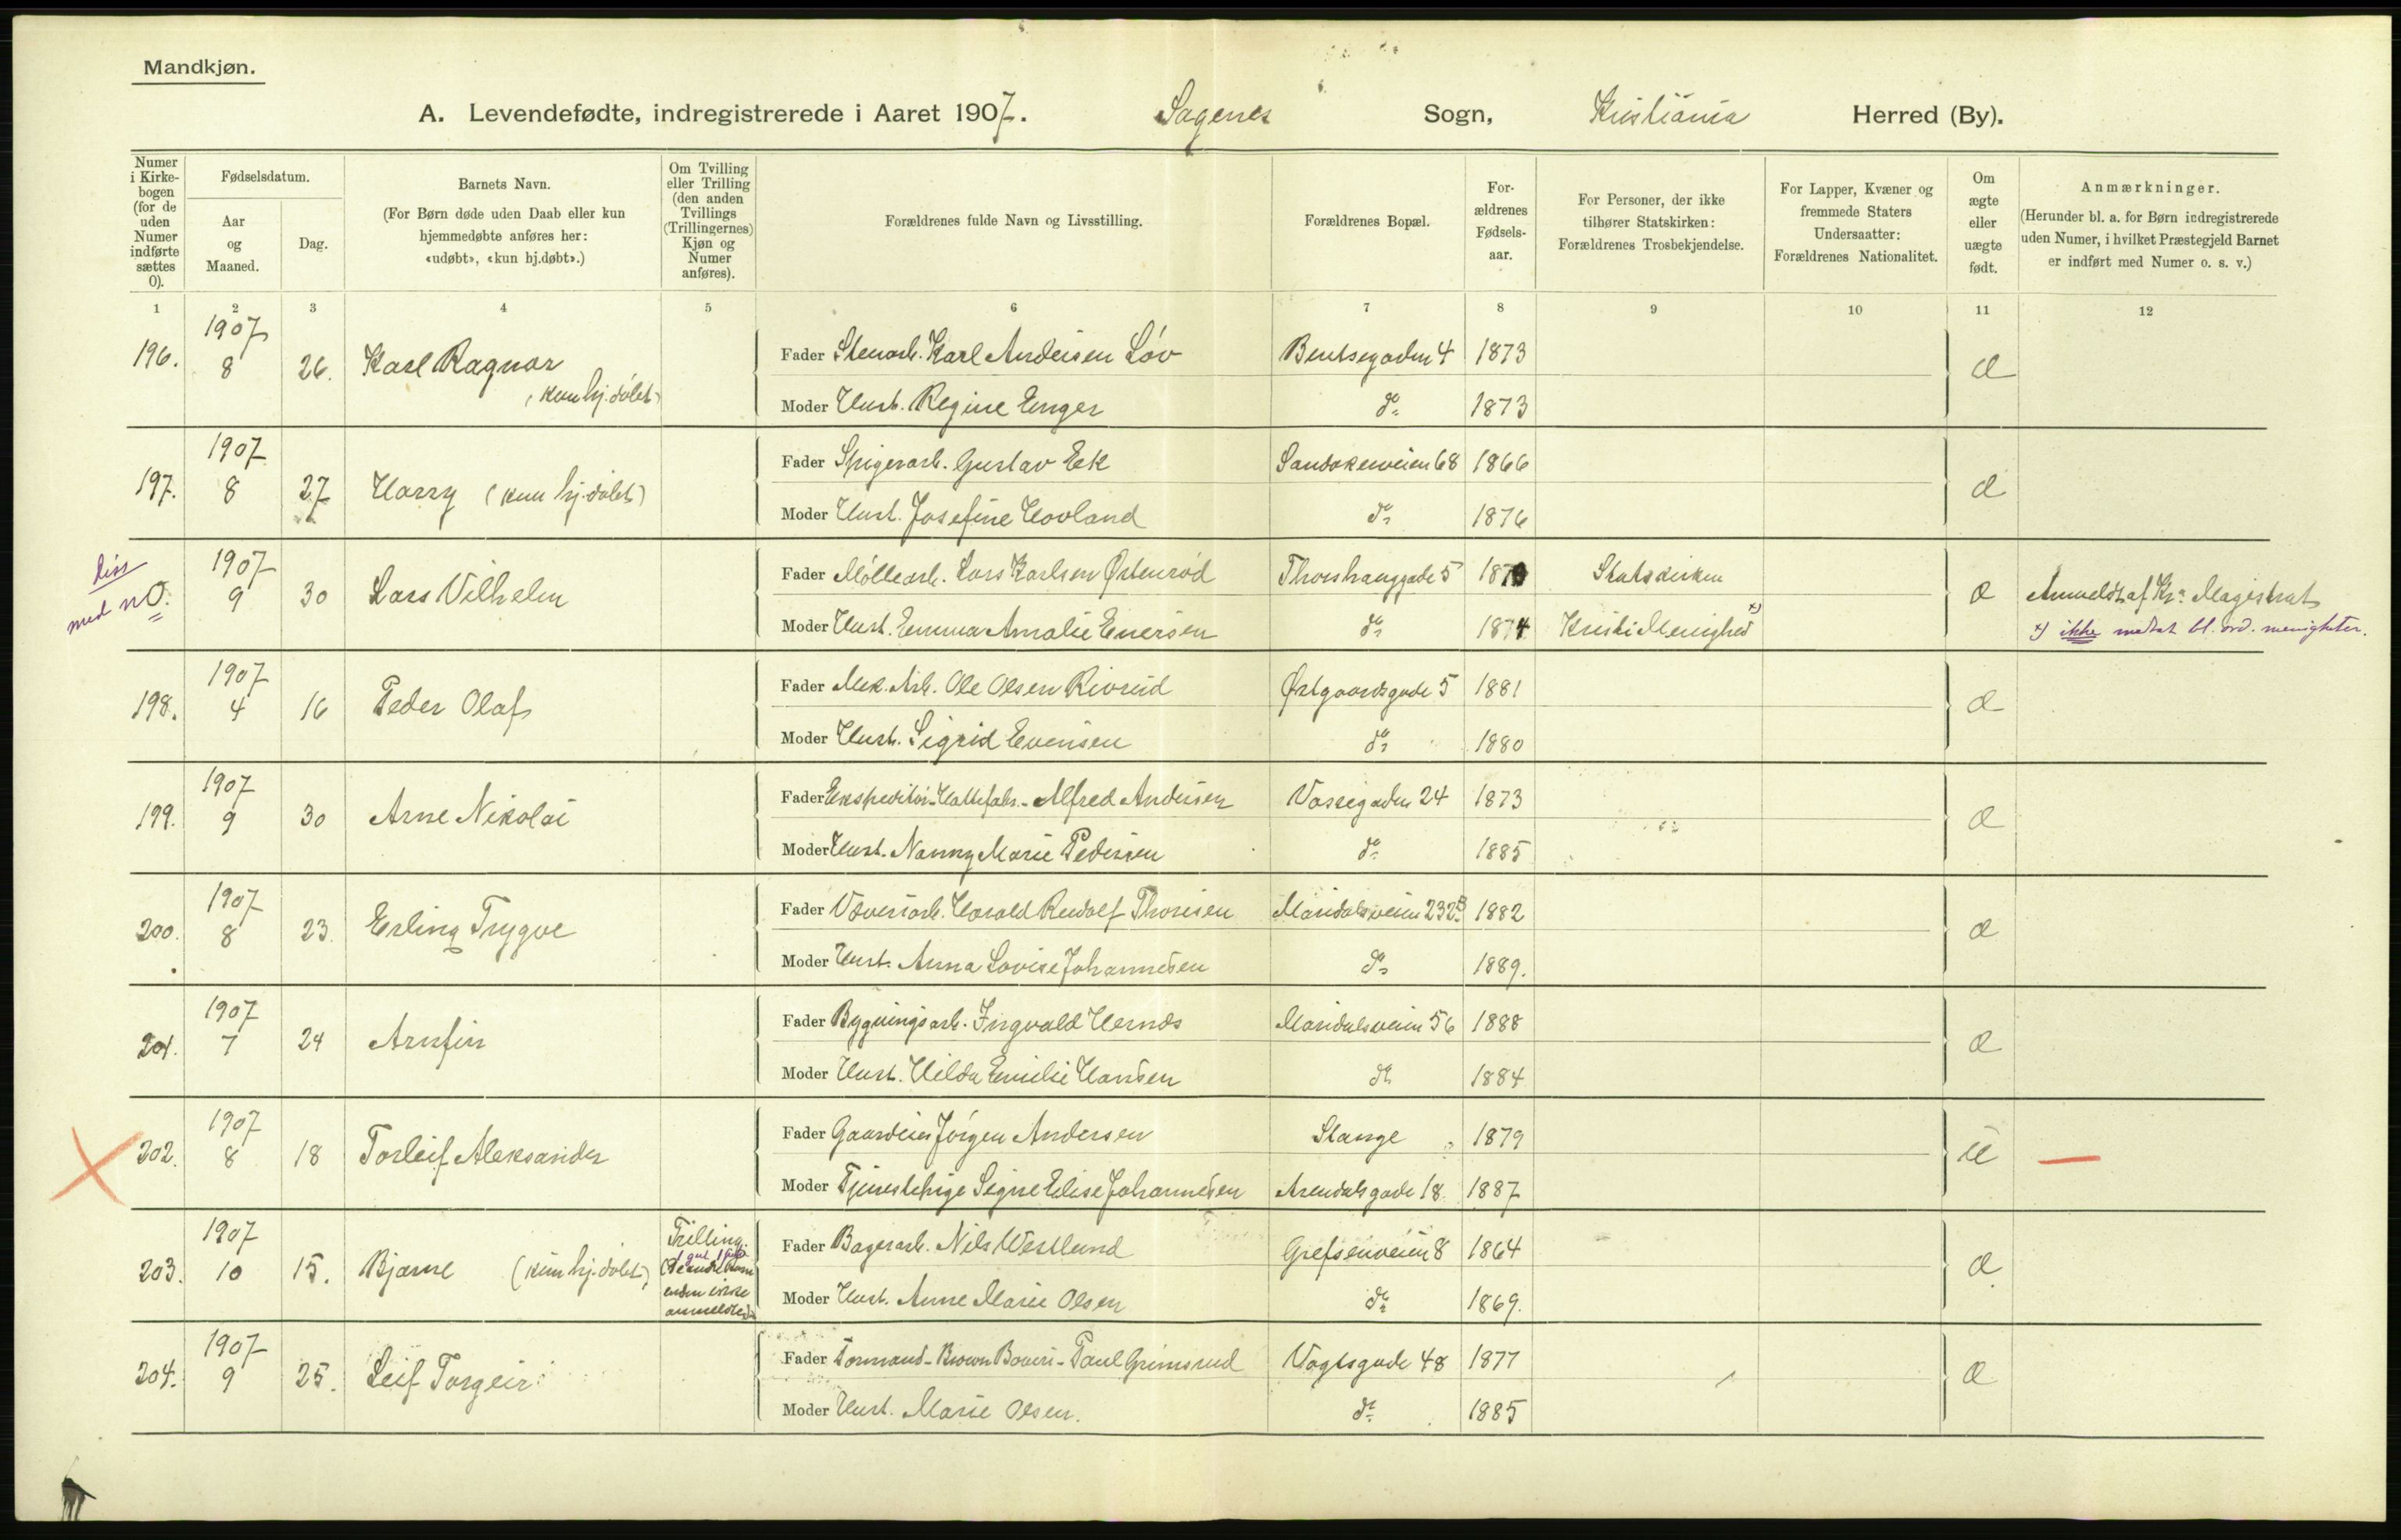 Mandkjøn.
A. Levendefødte, indregistrerede i Aaret 1907. Sagenes Sogn, Kristiania Herred (By).
Numer i Kirkebogen (for de uden Numer indførte sættes 0).
Fødselsdatum.
Aar og Maaned.
Dag.
Barnets Navn.
(For Børn døde uden Daab eller kun hjemmedøbte anføres her: «udøbt», «kun hj.døbt».)
Om Tvilling eller Trilling (den anden Tvillings (Trillingernes) Kjøn og Numer anføres).
Forældrenes fulde Navn og Livsstilling.
Forældrenes Bopæl.
Forældrenes Fødselsaar.
For Personer, der ikke tilhører Statskirken: Forældrenes Trosbekjendelse.
For Lapper, Kvæner og fremmede Staters Undersaatter: Forældrenes Nationalitet.
Om ægte eller uægte født.
Anmærkninger.
(Herunder bl. a. for Børn indregistrerede uden Numer, i hvilket Præstegjeld Barnet er indført med Numer o. s. v.)
1 2 3 4 5 6 7 8 9 10 11 12
196. 1907 8 26. Karl Ragnar (kun hj.døbt) Fader Stenarb. Karl Andersen Löv Bentsegaden 4 1873 æ
Moder Hust. Regine Enger do 1873
197. 1907 8 27 Harry (kun hj.døbt) Fader Spigerarb. Gustav Eek Sandakerveien 68 1866 æ
Moder Hust. Josefine Hovland do 1876
med no. 0. 1907 9 30 Lars Vilhelm Fader Møllearb. Lars Karlsen Østenrød Thorshauggade 5 Statskirken æ Anmeldt af Kra Magistrat
Moder Hust. Emma Amalie Enersen do 1874 Kristi Menighed x) x) ikke medtat bl. ord. menigheter.
198. 1907 4 16 Peder Olaf Fader Mek. Arb. Ole Olsen Rivrud Østgaardsgade 5 1881 æ
Moder Hust. Sigrid Evensen do 1880
199. 1907 9 30 Arne Nikolai Fader Ekspeditør-Hattefabr.- Alfred Andersen Vossegaden 24 1873 æ
Moder Hust. Nanny Marie Pedersen do 1885
200. 1907 8 23. Erling Trygve Fader Væveriarb. Harald Rudolf Thoresen Maridalsveien 232B 1882 æ
Moder Hust. Anna Lovise Johannesen do 1889.
201. 1907 7 24 Arnfin Fader Bygningsarb. Ingvald Hernæs Maridalsveien 56 1888 æ
Moder Hust. Hilda Emilie Hansen do 1884
202. 1907 8 18 Torleif Aleksander Fader Gaardeier Jörgen Andersen Stange 1879 u —
Moder Tjenestepige Signe Elise Johannesen Arendalsgade 18. 1887
203. 1907 10 15. Bjarne (kun hj.døbt) Trilling. Fader Bagerarb. Nils Westlund Grefsenveien 8 1864 æ
endnu ikke anmeldte Moder Hust. Anne Marie Olsen do 1869.
204. 1907 9 25. Leif Torgeir Fader Formand-Brown Boveri-Paul Grimsrud Vogtsgade 48 1877 æ
Moder Hust. Marie Olsen. do 1885